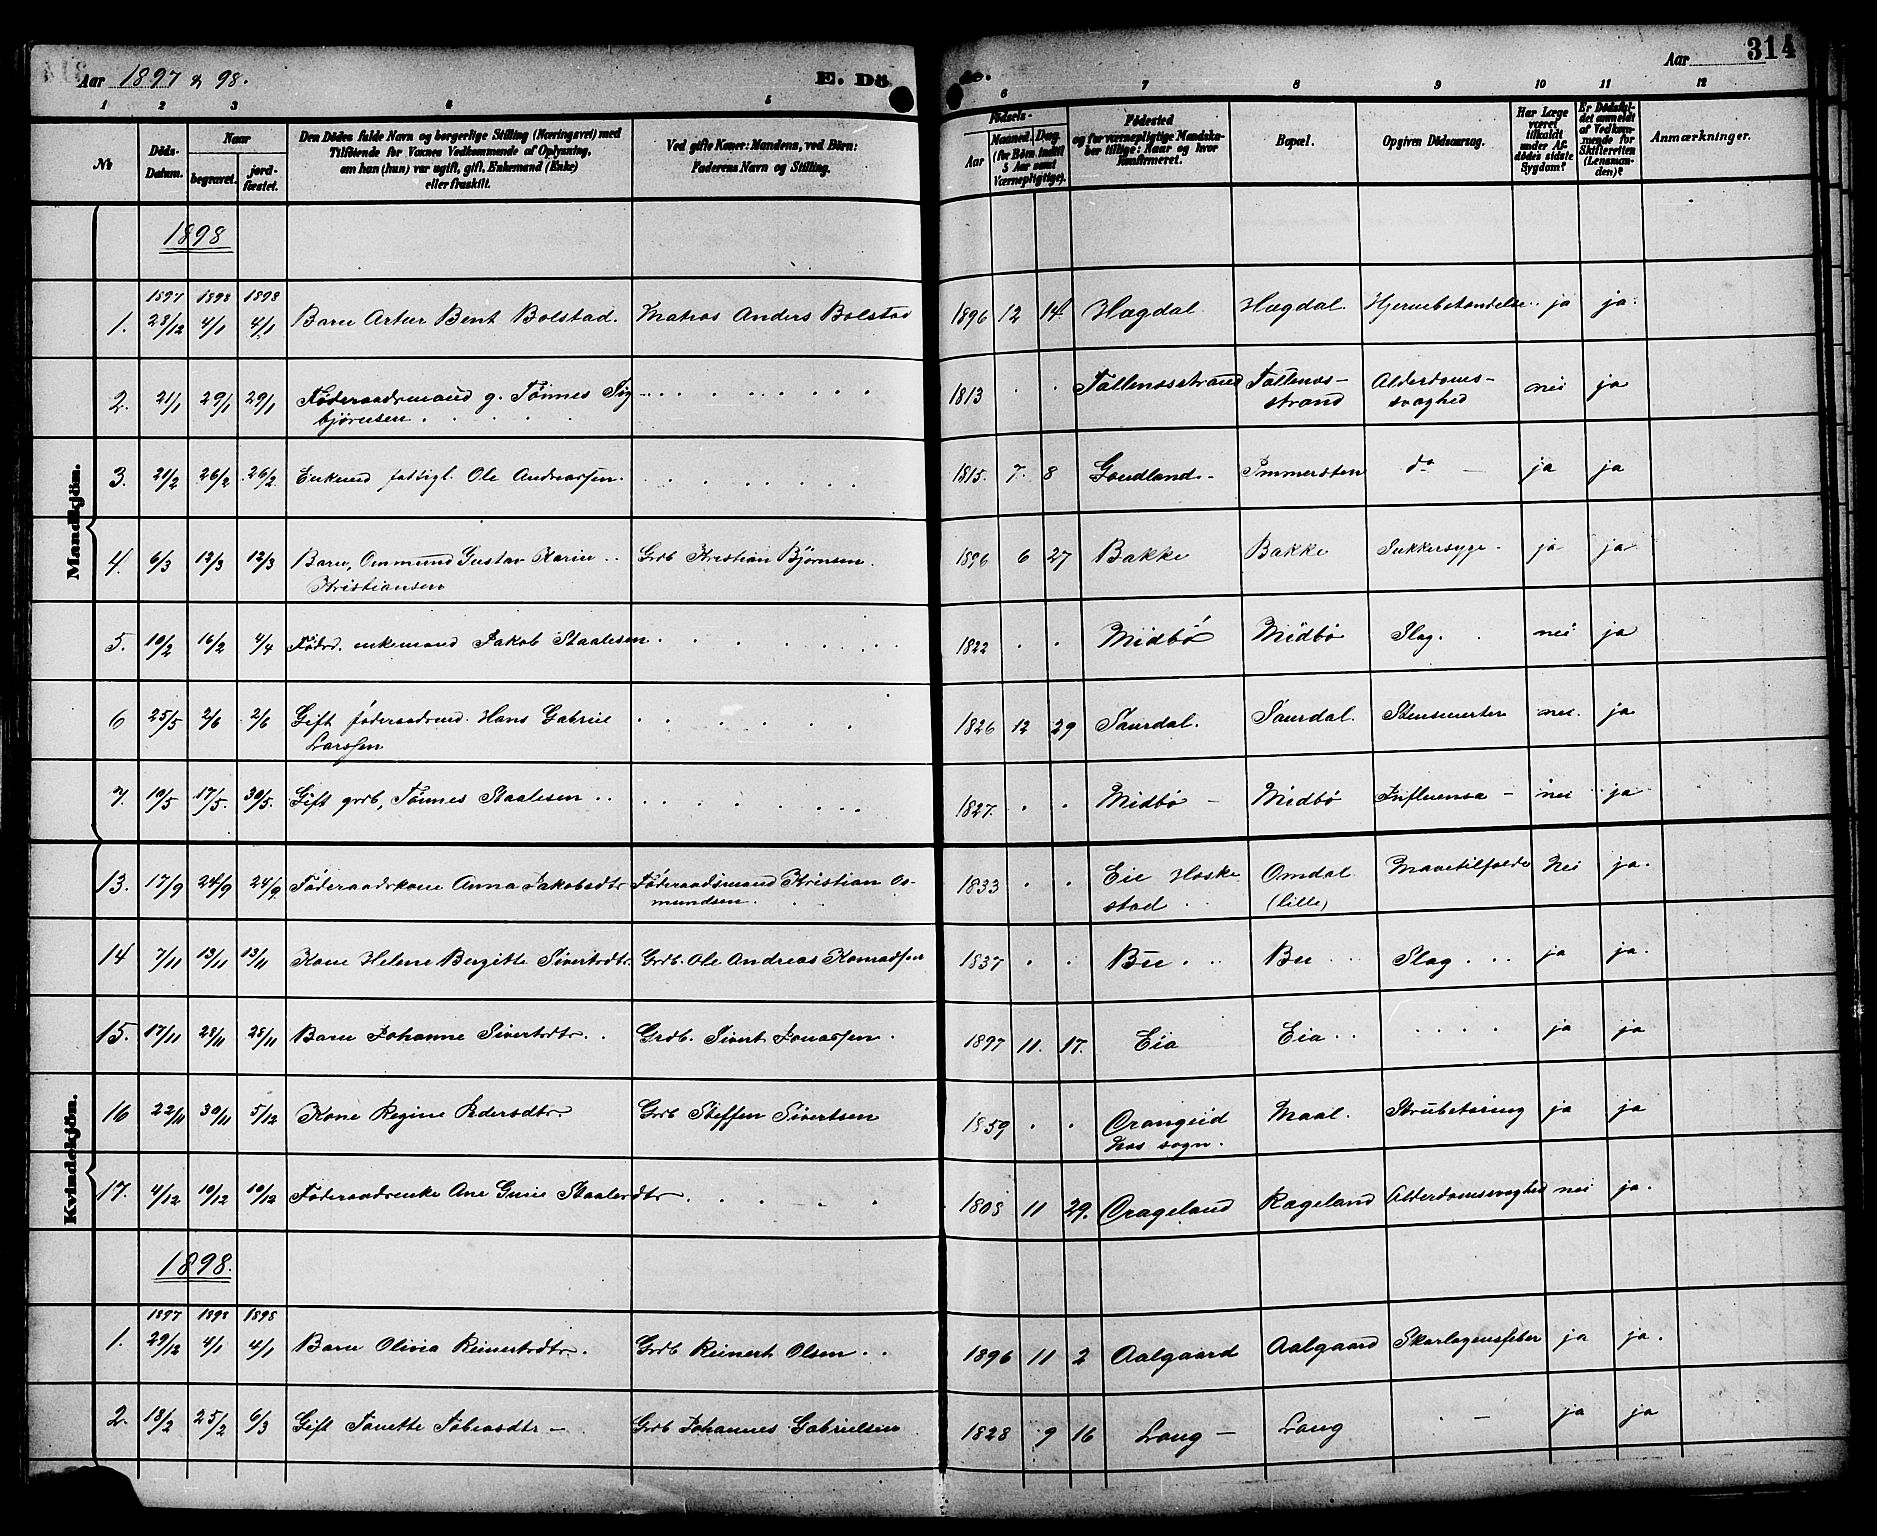 Aar 1897 & 98. E. Dö de. Aar 314
1 2 3 4 5 6 7 8 9 10 11 12
No Döds-Datum. Naar begravet. jord-fæstet. Den Dödes fulde Navn og borgerlige Stilling (Næringsvei) med Tilföiende for Voxnes Vedkommende af Oplysning, om han (hun) var ugift, gift, Enkemand (Enke) eller fraskilt. Ved gifte Koner: Mandens, ved Börn: Faderens Navn og Stilling. Födsels- Aar Maaned. Dag. (for Börn indtil 5 Aar samt Værnepligtige). Födested og for værnepligtige Mandskaber tillige: Naar og hvor konfirmeret. Bopæl. Opgiven Dödsaarsag. Har Læge været tilkaldt under Afdödes sidste Sygdom? Er Dödsfaldet anmeldt af Vedkommende for Skifteretten (Lensmanden)? Anmærkninger.
Mandkjön.
1898
1897 1898 1898
1. 28/12 4/1 4/1 Barn Artur Bent Bolstad. Matros Anders Bolstad 1896 12 14 Hægdal Hægdal. Hjernebetændelse.. ja ja.
2. 21/1 29/1 29/1 Föderaadsmand g. Tönnes Sig- 1813 . . Tallenesstrand Tallenes- Alderdoms- nei ja
björnsen. strand svaghed
3. 21/2 26/2 26/2 Enkemd fattigl. Ole Andreassen. 1815. 7. 8 Immersten do — ja ja
4. 6/3 12/3 12/3 Barn, Ommund Gustav Karin .. Grdb Kristian Björnsen. 1896 6 27 Bakke Bakke Sukkersyge. ja ja
Kristiansen
5. 10/2 16/2 4/4 Föder. enkemand Jakob Staalesen 1822 . . Midbö Midbö Slag. nei ja
6 25/5 2/6 2/6 Gift föderaadsmd. Hans Gabriel 1826 12 29 Saurdal. Saurdal. Stensmerter nei. ja
Larssen
7. 10/5 17/5. 30/5. Gift grdb, Tönnes Staalesen .. 1827. . . Midbö - Midbö Influensa - nei ja
Kvindekjön.
13. 17/9 24/9 24/9. Föderaadskone Anna Jakobsdtr Föderaadsmand Kristian Os- 1833 . . Eie Heske Omdal Mavetilfælde Nei ja.
mundsen. stad (lille)
14 7/11 13/11 13/11 Kone Helene Bergitte Sivertsdtr. Grdb. Ole Andreas Konradsen 1837 . . Bu .. Bu .. Slag. .. ja ja.
15. 17/11 28/11 28/11 Barn Johanne Sivertsdtr. . Grdb. Sivert Jonassen. 1897 11. 17. Eia Eia .. . . . . ja ja
16 22/11 30/11 5/12 Kone Regine Pedersdtr. Grdb Steffen Sivertsen 1859 . . Orangeid Maal. Strubetæring ja ja
hos sogn.
17. 4/12 10/12 10/12 Föderaadsenke Ane Gurie Staalesdtr. 1808 11 29. Orageland Rægeland Alderdomssvaghed nei ja.
1898.
1897 1898 1898
1. 29/12 4/1 4/1 Barn Olivia Reinertsdtr. Grdb Reinert Olsen .. 1896 11 2 Aalgaard Aalgaard Skarlagensfeber ja ja.
2. 18/2 25/2 6/3 Gift Tonette Tobiasdtr - Grdb Johannes Gabrielsen 1828 9 16 Long - Long . - ja ja